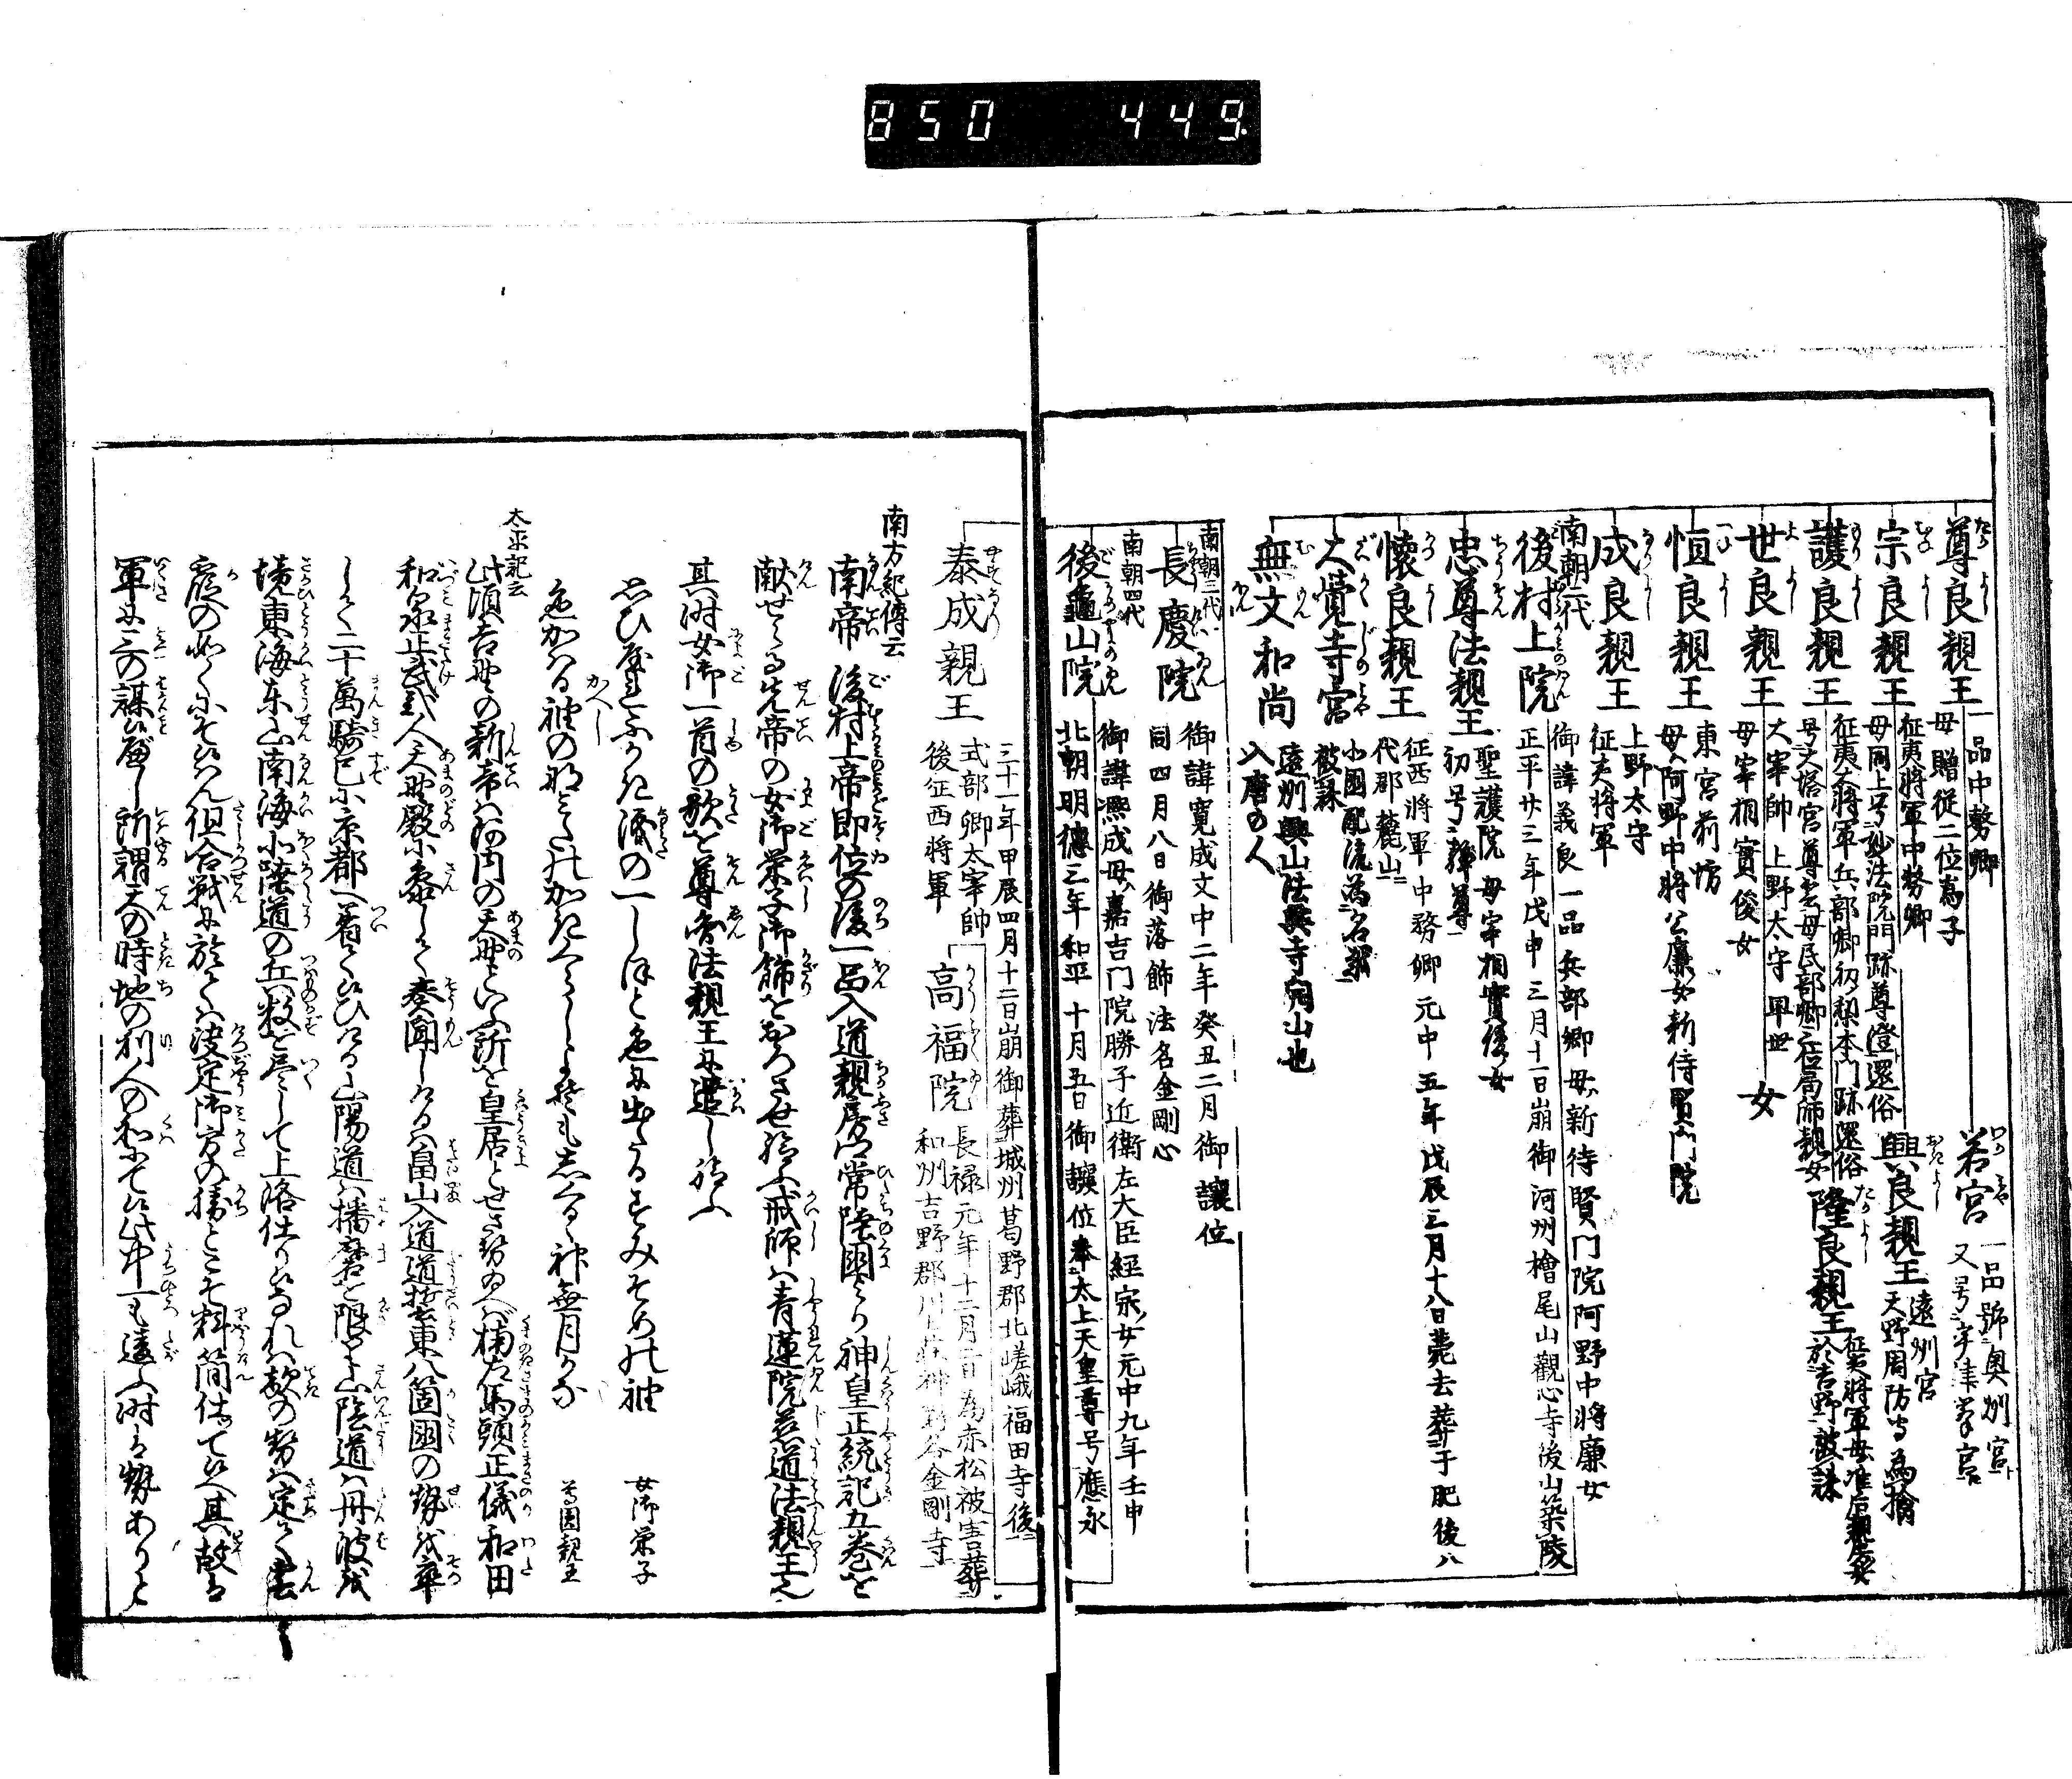 850 449
尊良親王 一品中務卿
母贈従二位為子
若宮 一品號奥州宮
又号宇津峯宮
宗良親王 征夷将軍中務卿
母同上号妙法院門跡尊澄還俗
興良親王 遠州宮
天野周防守為擒
護良親王 征夷大将軍兵部卿初梨本門跡還俗
号大塔宮尊雲母民部卿三位局師親女
隆良親王 征夷将軍母准后親房女
於吉野被誅
世良親王 大宰帥上野太守早世
母宰相實俊女
女
恒良親王 東宮前坊
母阿野中将公廉女新待賢門院
成良親王 上野太守
征夷将軍
南朝二代
後村上院 御諱義良一品兵部卿母新待賢門院阿野中将廉女
正平廿三年戊申三月十一日崩御河州檜尾山觀心寺後山築陵
忠尊法親王 聖護院母宰相實俊女
初号
懐良親王 征西将軍中務卿元中五年戊辰三月十八日薨去葬于肥後八
代郡麓山
大覺寺宮 小國配流
被誅
無文和尚 遠州興山法興寺開山也
入唐の人
南朝三代
長慶院 御諱寛成文中二年癸丑二月御讓位
同四月八日御落飾法名金剛心
南朝四代
後龜山院 御諱凞成母嘉吉門院勝子近衛左大臣経家女元中九年壬申
北朝明徳三年和平十月五日御譲位奉太上天皇尊号應永
三十一年甲辰四月十二日崩御葬城州葛野郡北嵯峨福田寺後
泰成親王 式部卿太宰帥
後征西将軍
高福院 長禄元年十二月 為赤松被害葬
和州吉野郡川上荘神 谷金剛寺
南方紀傳云
南帝後村上帝即位の後一品入道親房公常陸國より神皇正統記五巻を
献せらる先帝の女御栄子御餝をおろさせ給ふ戒師ハ青蓮院慈道法親王也
其时女御一首の歌を尊圓法親王に遣し給ふ
女御栄子
おもひやれふかき涙の一しほと色に出たるすみそめの袖
かへし
尊圓親王
色かハる袖の
太平記云
此頃吉野の新帝ハ河内の天野といふ所を皇居とせさせ給へハ楠左馬頭正儀和田
和泉正武二人天野殿に参して奏聞しけるハ畠山入道道誓東八箇國の勢を率
して二十萬騎已に京都へ着て候ひける山陽道ハ播磨を限り山陰道ハ丹波を
境東海東山南海北陸道の兵数を尽して上洛仕り候なれハ敵の勢ハ定て雲
霞の如くにそ候らん但合戦に於てハ決定御方の勝とこそ料簡仕て候へ其故は
軍に三の謀候べし所謂天の時地の利人の和にて候此中一も違ふ时は勢ありと